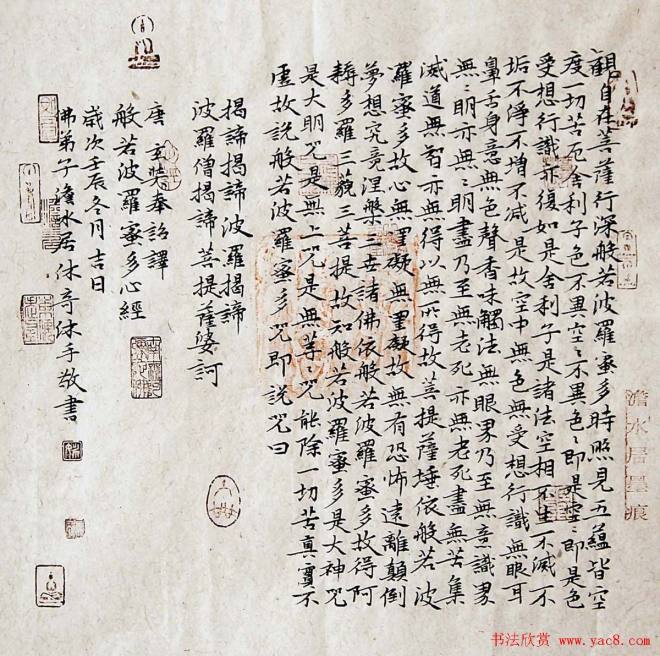 觀自在菩薩行深般若波羅蜜多時照見五蘊皆空
度一切苦厄舍利子色不異空〻不異色〻即是空〻即是色
受想行識亦復如是舍利子是諸法空相不生不滅不
垢不淨不增不減是故空中無色無受想行識無眼耳
鼻舌身意無色聲香味觸法無眼界乃至無意識界
無〻明亦無〻明盡乃至無老死亦無老死盡無苦集
滅道無智亦無得以無所得故菩提薩埵依般若波
羅蜜多故心無罣礙無罣礙故無有恐怖遠離顛倒
夢想究竟涅槃三世諸佛依般若波羅蜜多故得阿
耨多羅三藐三菩提故知般若波羅蜜多是大神咒
是大明咒是無上咒是無等咒能除一切苦真實不
虛故說般若波羅蜜多咒即說咒曰
揭諦揭諦波羅揭諦
波羅僧揭諦菩提薩婆訶
唐玄奘奉詔譯
般若波羅蜜多心經
歲次壬辰冬月吉日
佛弟子澹水居休奇沐手敬書
澹水居墨痕
书法欣赏 www.yac8.com